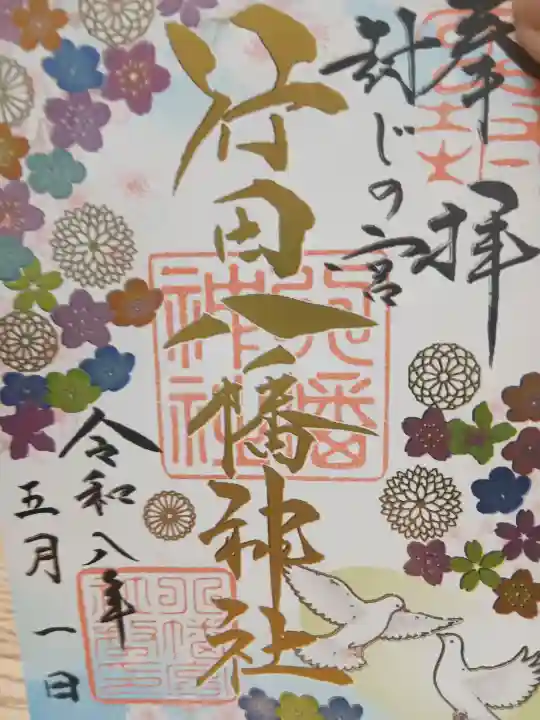 奉拝
封じの宮
行田八幡神社
令和八年
五月一日